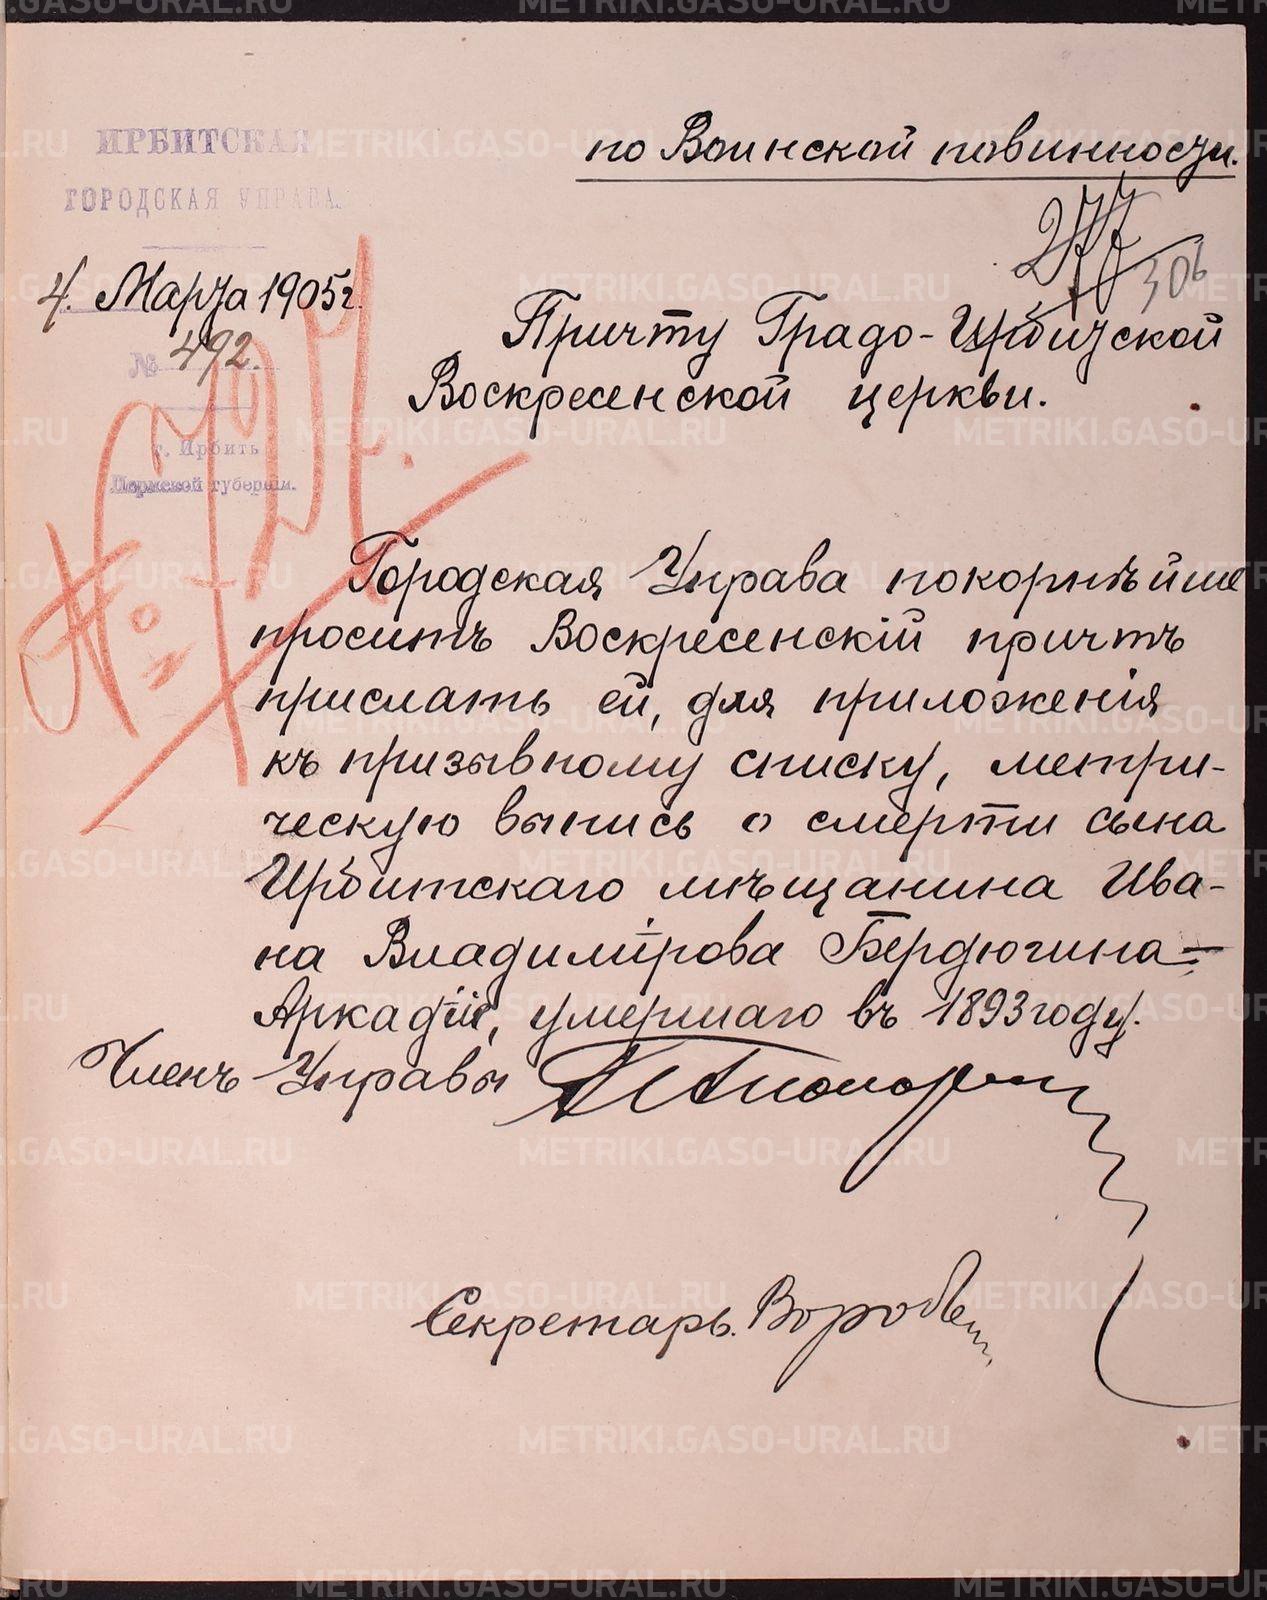 ИРБИТСКАЯ
ГОРОДСКАЯ УПРАВА.
4 Марта 1905 г.
№ 492.
г. Ирбить
Пермской губерніи.
по Воинской повинности.
277
306
Причту Градо-Ирбитской
Воскресенской церкви.
Городская Управа покорнѣйше
проситъ Воскресенскій причтъ
прислать ей, для приложенія
къ призывному списку, метри-
ческую выпись о смерти сына
Ирбитскаго мѣщанина Ива-
на Владимірова Бердюгина -
Аркадія, умершаго въ 1893 году.
Членъ Управы
Секретарь
METRIKI.GASO-URAL.RU